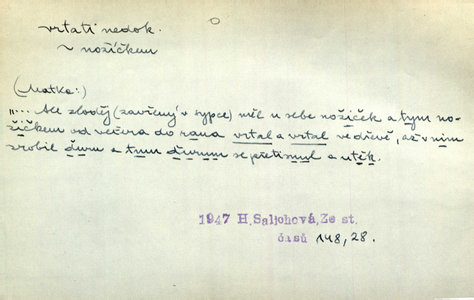 vrtati nedok.
~ nožíčkem
(Matka:)
„... Ale zloděj (zavřený v sypce) měl u sebe nožíček a tym no-
žíčkem od večera do rana vrtal a vrtal ve dřevě, až v nim
zrobil ďuru a tum ďurum se přetisnul a utěk.
1947 H. Salichová, Ze st.
časů 148, 28.